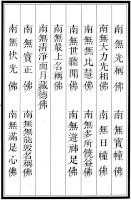 南無光稱佛　南無寶幢佛
南無大力光相佛　南無日幢佛
南無無比慧佛　南無多所饒益佛
南無世聽聞佛　南無遊神足佛
南無最上名稱佛
南無清淨面月藏德佛
南無寶正佛　南無無毀名稱佛
南無伏光佛　南無滿足心佛